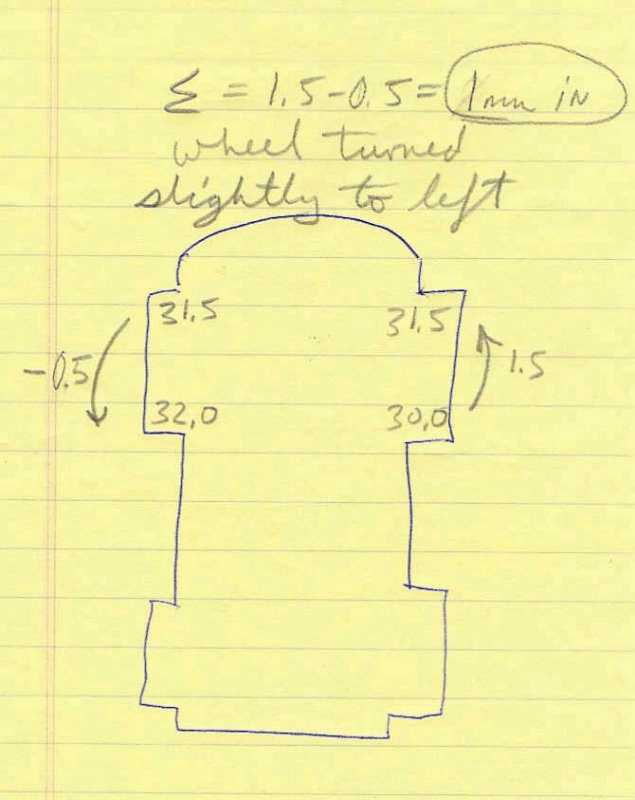 Σ = 1.5-0.5= 1mm IN
wheel turned
slightly to left
31,5 31,5
-0.5 1.5
32,0 30,0